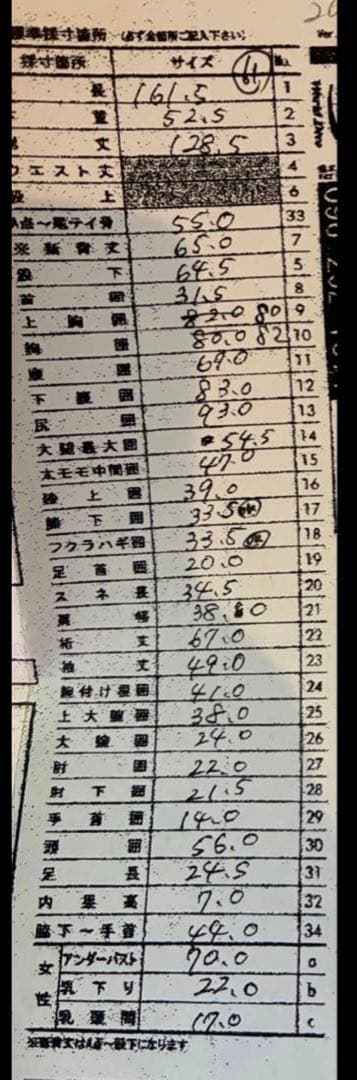 標準採寸箇所 (必ず全個所ご記入下さい) Ver.
採寸箇所 サイズ 61 No.
長 161.5 1
重 52.5 2
丈 128.5 3
ウエスト丈 4
股上 6
A点～尾テイ骨 55.0 33
※ 背丈 65.0 7
股下 64.5 5
首囲 31.5 8
上胸囲 82.0 80 9
胸囲 80.0 82 10
腹囲 69.0 11
下腹囲 83.0 12
尻囲 93.0 13
大腿最大囲 54.5 14
太モモ中間囲 47.0 15
膝上囲 39.0 16
膝下囲 33.5 17
フクラハギ囲 33.5 18
足首囲 20.0 19
スネ長 34.5 20
肩幅 38.0 21
裄丈 67.0 22
袖丈 49.0 23
腕付け根囲 41.0 24
上大腕囲 38.0 25
大腕囲 24.0 26
肘囲 22.0 27
肘下囲 21.5 28
手首囲 14.0 29
頭囲 56.0 30
足長 24.5 31
内 高 7.0 32
脇下～手首 44.0 34
女性
アンダーバスト 70.0 a
乳下り 22.0 b
乳頭間 17.0 c
※ 背丈はA点～股下になります